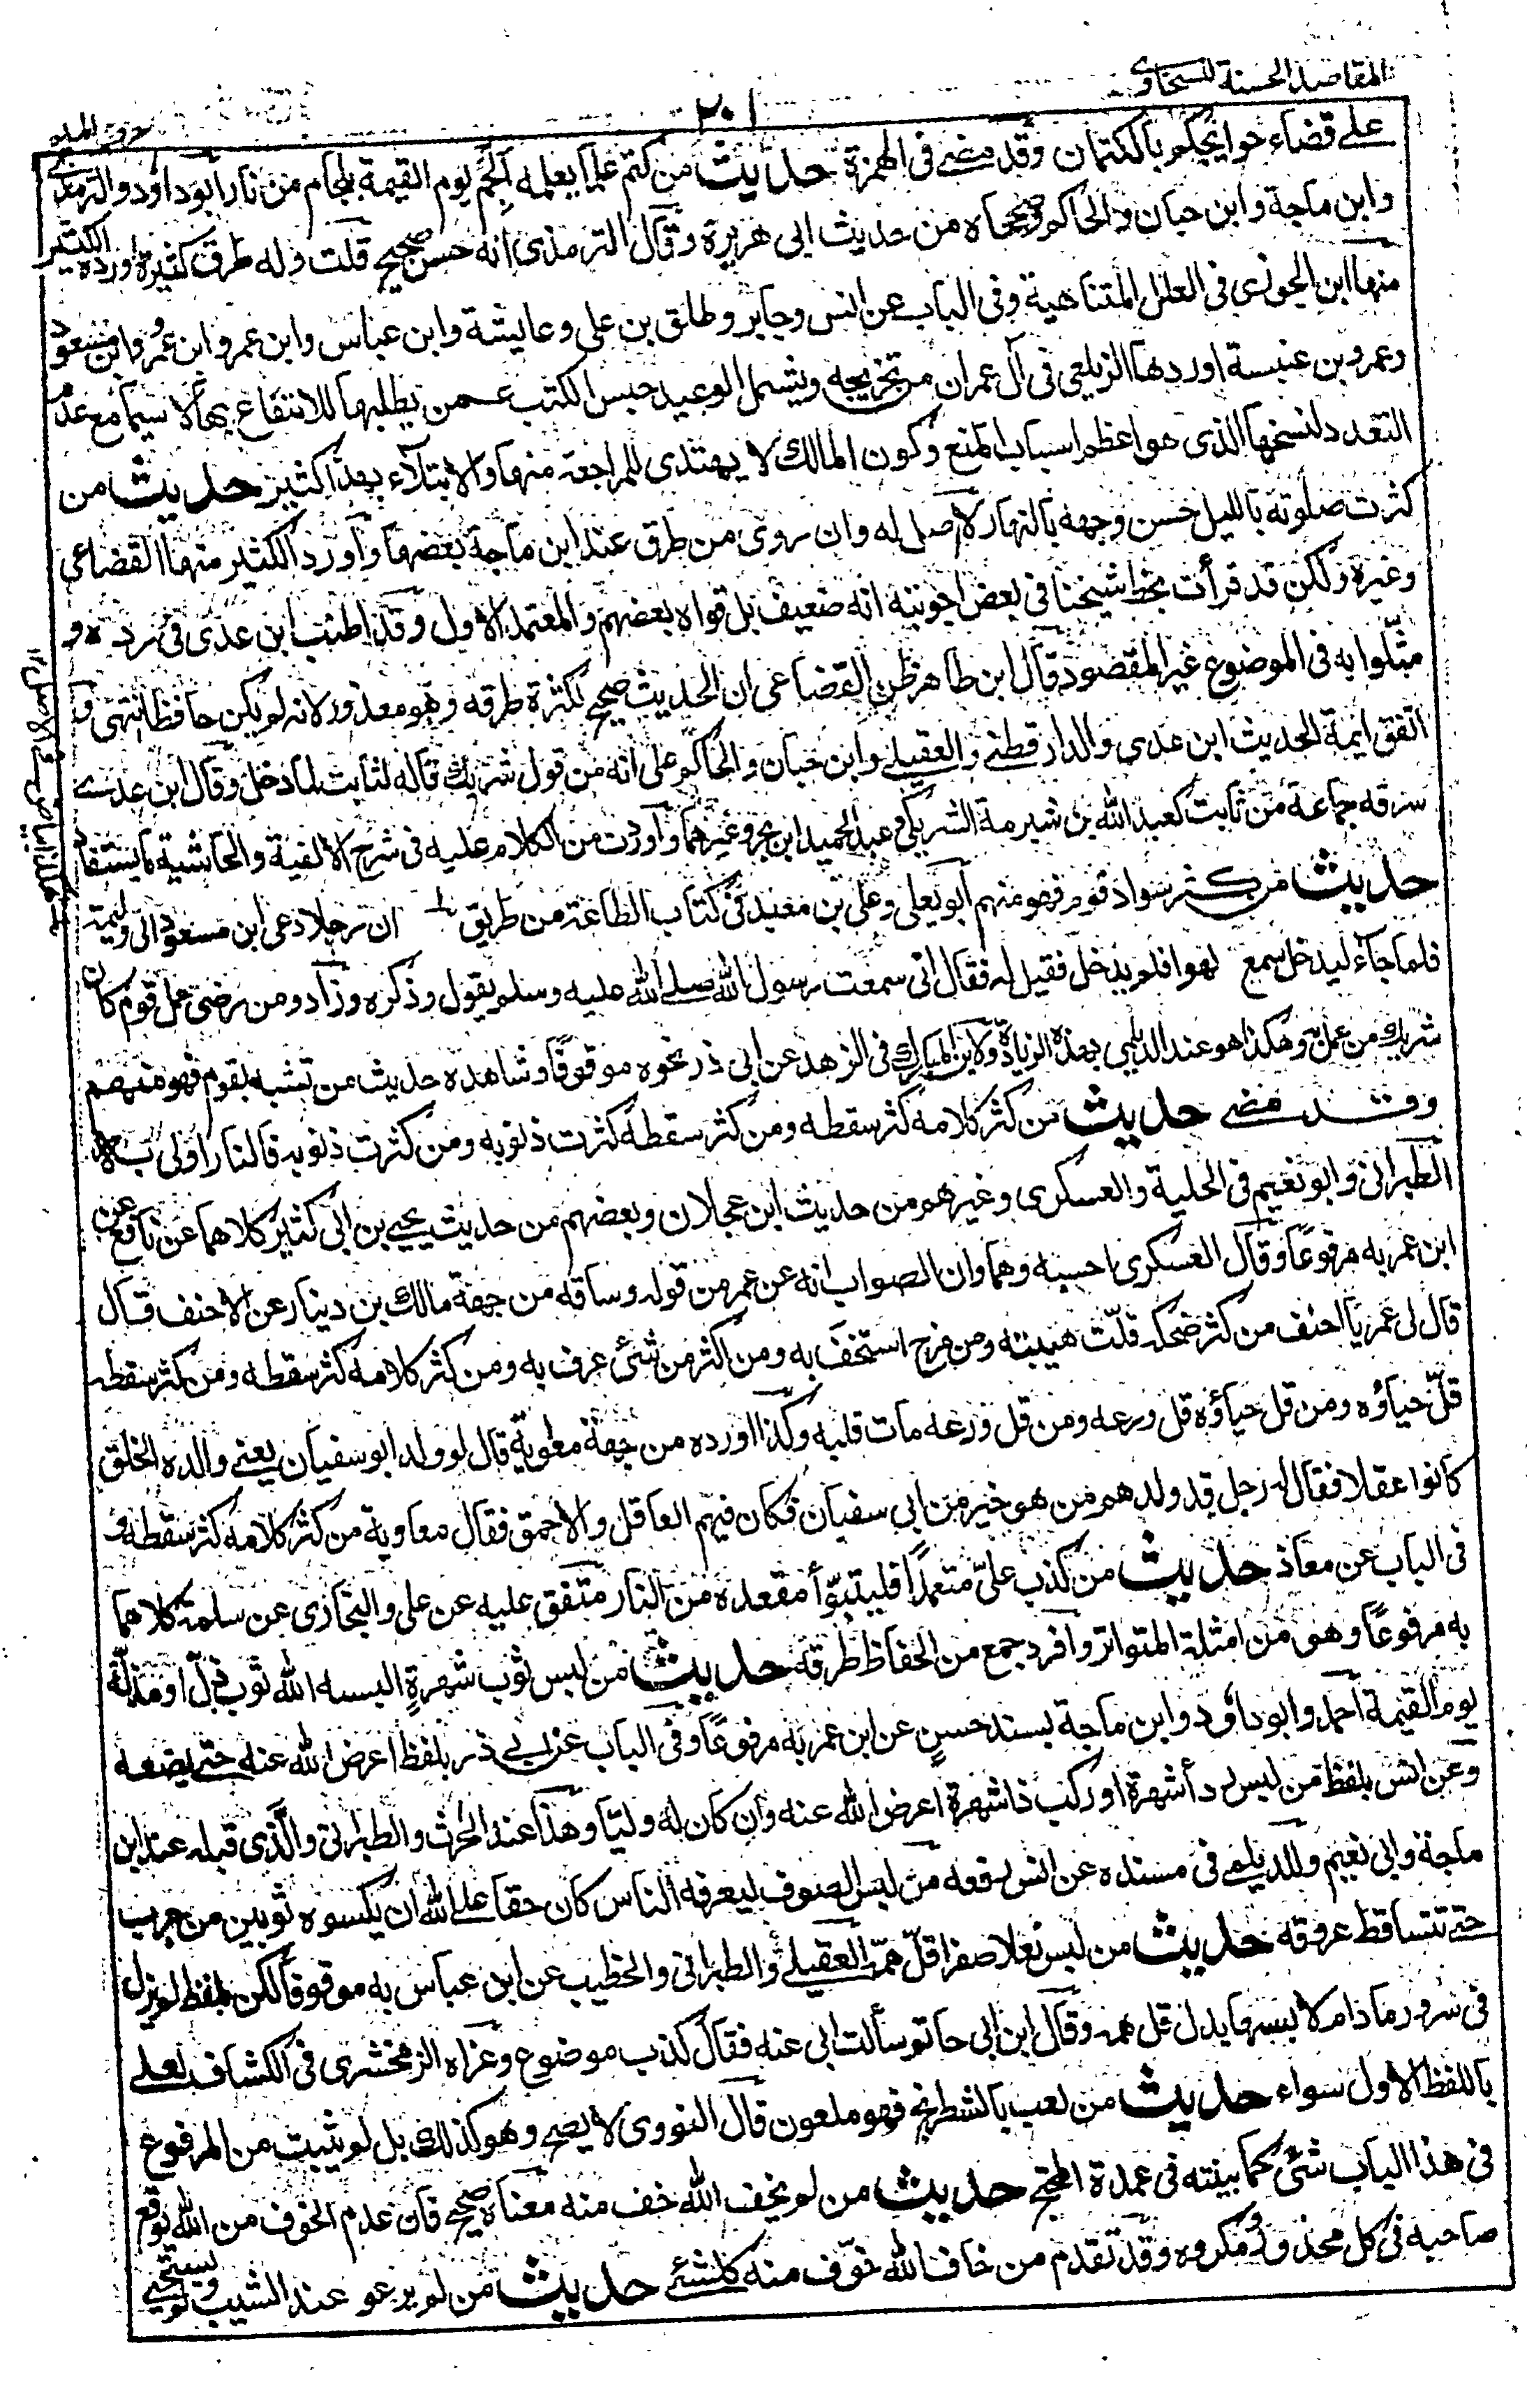 المقاصد الحسنة للسخاوى
٢٠١
حرف الميم
على قضاء حوايجكم بالكتمان وقد مضى فى الهمزة حديث من كتم علما يعلمه الجم يوم القيمة بلجام من نار ابوداؤد والترمذى
وابن ماجة وابن حبان والحاكم وصححاه من حديث ابى هريرة وقال الترمذى انه حسن صحيح قلت وله طرق كثيرة اورد الكثير
منها ابن الجوزى فى العلل المتناهية وفى الباب عن انس وجابر وطلق بن على وعايشة وابن عباس وابن عمر وابن عمرو وابن مسعود
وعمرو بن عنبسة اوردها الزيلعى فى آل عمران من تخريجه ويشمل الوعيد حبس الكتب عمن يطلبها للانتفاع بها لا سيما مع عدم
التعدد لنسخها الذى هو اعظم اسباب المنع وكون المالك لا يهتدى للمراجعة منها والابتلاء بهذا كثير حديث من
كثرت صلوته بالليل حسن وجهه بالنهار لا اصل له وان روى من طرق عند ابن ماجة بعضها واورد الكثير منها القضاعى
وغيره ولكن قد قرأت بخط شيخنا فى بعض اجوبته انه ضعيف بل قواه بعضهم والمعتمد الاول وقد اطنب ابن عدى فى رده و
مثّلوا به فى الموضوع غير المقصود قال ابن طاهر ظن القضاعى ان الحديث صحيح لكثرة طرقه وهو معذور لانه لم يكن حافظا انتهى و
اتفق ايمة الحديث ابن عدى والدارقطنى والعقيلى وابن حبان والحاكم على انه من قول شريك قاله لثابت لما دخل وقال ابن عدى
سرقه جماعة من ثابت كعبد الله بن شبرمة الشريكى وعبد الحميد ابن بحر وغيرهما واوردت من الكلام عليه فى شرح الالفية والحاشية ما يستفاد
حديث من كثر سواد قوم فهو منهم ابو يعلى وعلى بن معبد فى كتاب الطاعة من طريق ان رجلا دعى ابن مسعود الى وليمة
فلما جاء ليدخل سمع لهوا فلم يدخل فقيل له فقال انى سمعت رسول الله صلى الله عليه وسلم يقول وذكره وزاد ومن رضى عمل قوم كان
شريك من عمل به وهكذا هو عند الديلمى بهذه الزيادة ولابن المبارك فى الزهد عن ابى ذر نحوه موقوفًا وشاهده حديث من تشبه بقوم فهو منهم
وقد مضى حديث من كثر كلامه كثر سقطه ومن كثر سقطه كثرت ذنوبه ومن كثرت ذنوبه فالنار اولى به
الطبرانى وابو نعيم فى الحلية والعسكرى وغيرهم من حديث ابن عجلان وبعضهم من حديث يحيى بن ابى كثير كلاهما عن نافع عن
ابن عمر به مرفوعًا وقال العسكرى احسبه وهما وان الصواب انه عن عمر من قوله وساقه من جهة مالك بن دينار عن الاحنف قال
قال لى عمر يا احنف من كثر ضحكه قلّت هيبته ومن مزح استخف به ومن اكثر من شئ عرف به ومن كثر كلامه كثر سقطه ومن كثر سقطه
قلّ حياؤه ومن قل حياؤه قل ورعه ومن قل ورعه مات قلبه وكذا اورده من جهة معوية قال لو ولد ابو سفيان يعنى والده الخلق
كانوا عقلا فقال له رجل قد ولدهم من هو خير من ابى سفيان فكان فيهم العاقل والاحمق فقال معاوية من كثر كلامه كثر سقطه و
فى الباب عن معاذ حديث من كذب علىّ متعمدًا فليتبوّأ مقعده من النار متفق عليه عن على والبخارى عن سلمة كلاهما
به مرفوعًا وهو من امثلة المتواتر وافرد جمع من الحفاظ طرقه حديث من لبس ثوب شهرةٍ البسه الله ثوب ذل او مذلة
يوم القيمة احمد وابو داؤد وابن ماجة بسند حسن عن ابن عمر به مرفوعًا وفى الباب عن ابى ذر بلفظ اعرض الله عنه حتى يضعه
وعن انس بلفظ من لبس رداً شهرة او ركب ذا شهرة اعرض الله عنه وان كان له وليّا وهذا عند الحرث والطبرانى والذى قبله عند ابن
ماجة وابى نعيم وللديلمى فى مسنده عن انس رفعه من لبس الصوف ليعرفه الناس كان حقا على الله ان يكسوه ثوبين من جرب
حتى تتساقط عروقه حديث من لبس نعلا صفرا قلّ همّه العقيلى والطبرانى والخطيب عن ابن عباس به موقوفا لكن بلفظ لم يزل
فى سرور ما دام لابسها يدل قل همه وقال ابن ابى حاتم سألت ابى عنه فقال كذب موضوع وعزاه الزمخشرى فى الكشاف لعلى
باللفظ الاول سواء حديث من لعب بالشطرنج فهو ملعون قال النووى لا يصح وهو كذلك بل لم يثبت من المرفوع
فى هذا الباب شئ كما بينته فى عمدة المحتج حديث من لم يخف الله خف منه معناه صحيح فان عدم الخوف من الله توقع
صاحبه فى كل محذور ومكروه وقد تقدم من خاف الله خوّف منه كلشئ حديث من لم يرعو عند الشيب ويستحيى